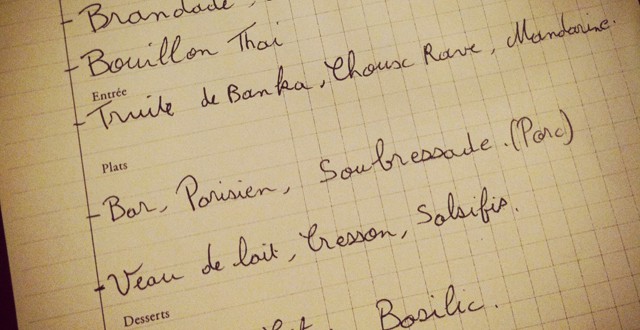 - Brandade,
- Bouillon Thai
Entrée
- Truite de Banka, Choux Rave, Mandarine.
Plats
- Bar, Parisien, Soubressade. (Porc)
- Veau de lait, Cresson, Salsifis.
Desserts
Basilic.